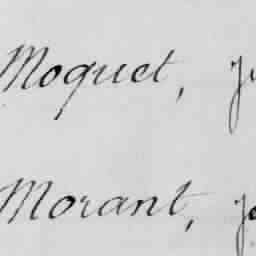 Moquet,
Morant,